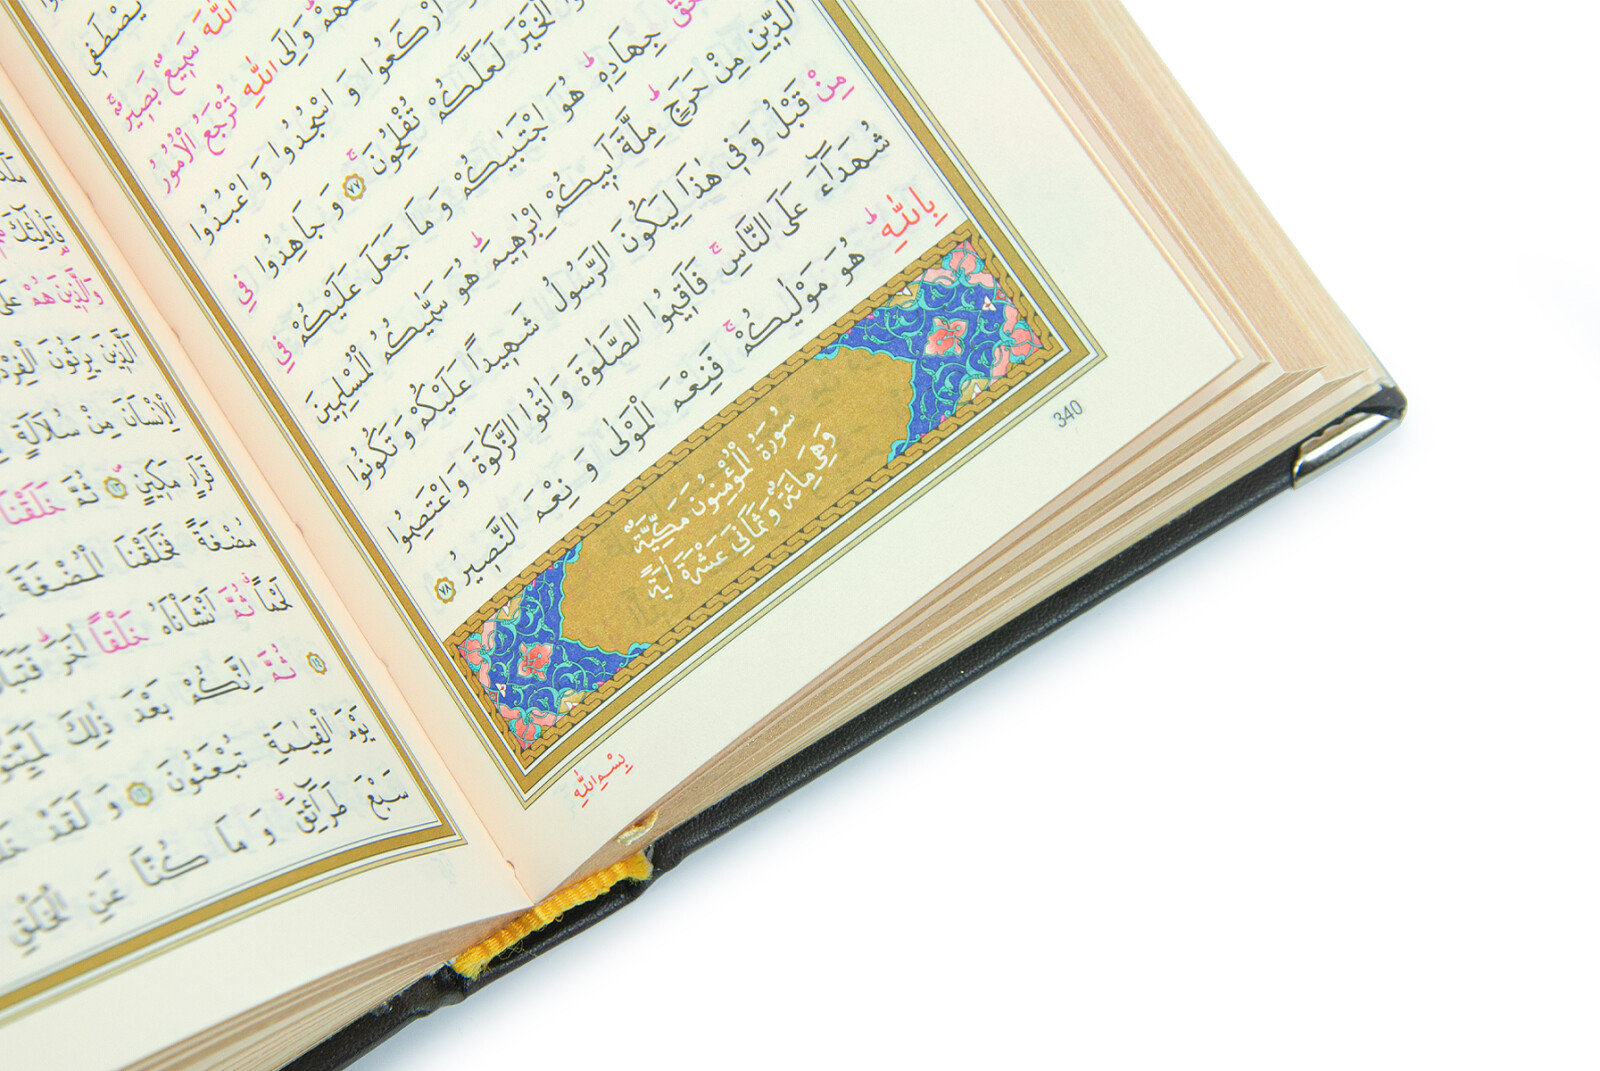 يَصْطَفٖي
اللّٰهَ سَمٖيعٌ بَصٖيرٌ
وَاِلَى اللّٰهِ تُرْجَعُ الْاُمُورُ
ارْكَعُوا وَ اسْجُدُوا وَ اعْبُدُوا
الْخَيْرَ لَعَلَّكُمْ تُفْلِحُونَ ۚ ﴿٧٧﴾ وَ جَاهِدُوا فِي
جِهَادِهٖ ۜ هُوَ اجْتَبٰيكُمْ وَ مَا جَعَلَ عَلَيْكُمْ فِي
الدّٖينِ مِنْ حَرَجٍ ۜ مِلَّةَ اَبٖيكُمْ اِبْرٰهٖيمَ ۜ هُوَ سَمّٰيكُمُ الْمُسْلِمٖينَ
مِنْ قَبْلُ وَفٖي هٰذَا لِيَكُونَ الرَّسُولُ شَهٖيداً عَلَيْكُمْ وَ تَكُونُوا
شُهَدَٓاءَ عَلَى النَّاسِ ۚ فَاَقٖيمُوا الصَّلٰوةَ وَ اٰتُوا الزَّكٰوةَ وَ اعْتَصِمُوا
بِاللّٰهِ ۜ هُوَ مَوْلٰيكُمْ ۚ فَنِعْمَ الْمَوْلٰى وَ نِعْمَ النَّصٖيرُ ﴿٧٨﴾
سُورَةُ الْمُؤْمِنُونَ مَكِّيَّةٌ
وَهِيَ مِائَةٌ وَثَمَانِيَ عَشْرَةَ اٰيَةً
340
بِسْمِ اللّٰهِ
فَاُولٰٓئِكَ
وَالَّذٖينَ هُمْ
الَّذٖينَ يَرِثُونَ
الْاِنْسَانَ مِنْ سُلَالَةٍ
قَرَارٍ مَكٖينٍ ﴿١٣﴾ ثُمَّ خَلَقْنَا
مُضْغَةً فَخَلَقْنَا الْمُضْغَةَ
لَحْماً ثُمَّ اَنْشَأْنَاهُ خَلْقاً اٰخَرَ
﴿١٥﴾ ثُمَّ اِنَّكُمْ بَعْدَ ذٰلِكَ
يَوْمَ الْقِيٰمَةِ تُبْعَثُونَ ﴿١٦﴾ وَ لَقَدْ
سَبْعَ طَرَٓائِقَ وَ مَا كُنَّا عَنِ الْخَلْقِ